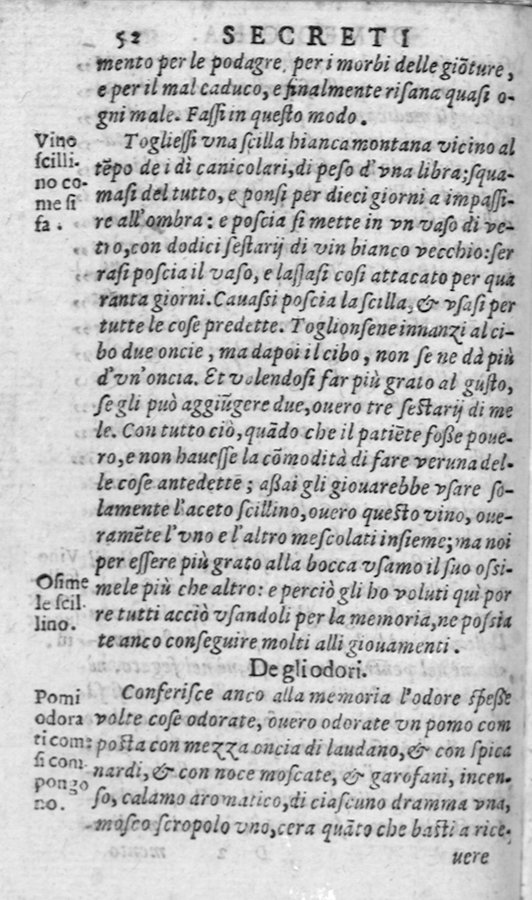 52 SECRETI
mento per le podagre, per i morbi delle giõture,
e per il mal caduco, e finalmente risana quasi o-
gni male. Fassi in questo modo.
Vino
scilli-
no co-
me si
fa.
Togliessi vna scilla bianca montana vicino al
tẽpo de i dì canicolari, di peso d'vna libra: squa-
masi del tutto, e ponsi per dieci giorni a impassi-
re all'ombra: e poscia si mette in vn vaso di ve-
tro, con dodici sestarij di vin bianco vecchio: ser
rasi poscia il vaso, e lassasi cosi attacato per qua
ranta giorni. Cauassi poscia la scilla, & vsasi per
tutte le cose predette. Toglionsene innanzi al ci-
bo due oncie, ma dapoi il cibo, non se ne dà più
d'vn'oncia. Et volendosi far più grato al gusto,
se gli può aggiũgere due, ouero tre sestarij di me
le. Con tutto ciò, quãdo che il patiẽte fosse poue-
ro, e non hauesse la cõmodità di fare veruna del-
le cose antedette; assai gli giouarebbe vsare so-
lamente l'aceto scillino, ouero questo vino, oue-
ramẽte l'vno e l'altro mescolati insieme; ma noi
per essere più grato alla bocca vsamo il suo ossi-
mele più che altro: e perciò gli ho voluti qui por
re tutti acciò vsandoli per la memoria, ne possia
te anco conseguire molti alli giouamenti.
Osime
le scil-
lino.
De gli odori.
Pomi
odora
ti come
si com-
pongo
no.
Conferisce anco alla memoria l'odore spesse
volte cose odorate, ouero odorate vn pomo com
posta con mezza oncia di laudano, & con spica
nardi, & con noce moscate, & garofani, incen-
so, calamo aromatico, di ciascuno dramma vna,
mosco scropolo vno, cera quãto che basti a rice-
uere